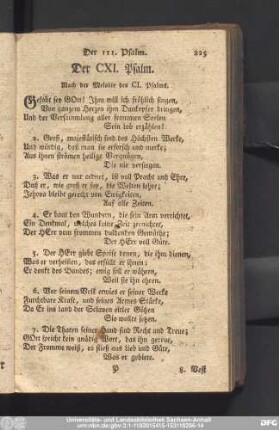 Der 111. Psalm. 225
Der CXI. Psalm.
Nach der Melodie des CI. Psalms.
Gelobt sey GOtt! Ihm will ich fröhlich singen,
Von ganzem Herzen ihm Dankopfer bringen,
Und der Versammlung aller frommen Seelen
Sein Lob erzählen!
2. Groß, majestätisch sind des Höchsten Werke,
Und würdig, daß man sie erforsch und merke;
Aus ihnen strömen heilige Vergnügen,
Die nie versiegen.
3. Was er nur ordnet, ist voll Pracht und Ehre,
Daß er, wie groß er sey, die Welten lehre;
Jehova bleibt gerecht von Ewigkeiten,
Auf alle Zeiten.
4. Er baut den Wundern, die sein Arm verrichtet,
Ein Denkmal, welches keine Zeit zernichtet,
Der HErr vom frommen duldenden Gemüthe;
Der HErr voll Güte.
5. Der HErr giebt Speise denen, die ihm dienen,
Was er verheissen, das erfüllt er ihnen;
Er denkt des Bundes; ewig soll er währen,
Weil sie ihn ehren.
6. Wer seinem Volk erwies er seiner Werke
Furchtbare Kraft, und seines Armes Stärke,
Da er ins Land der Heiden
Sie wollte setzen.
7. Die Thaten seiner Hand sind Recht und Treue;
GOtt spricht kein gnädig Wort, das ihn gereue,
Der Fromme weiß, es fließt aus Lieb und Güte,
Was er gebiete.
P 8. Vest
Universitäts- und Landesbibliothek Sachsen-Anhalt